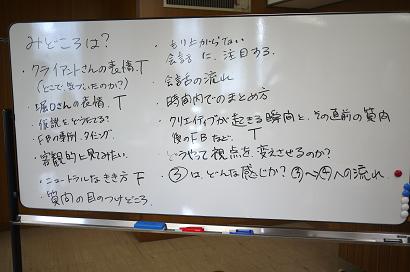 みどころは？
・クライアントさんの表情、T
（どこで気づいたのか？）
・堀口さんの表情、T
・仮説をどう立てる？
FBの事例、タイミング
・客観的に見てみたい。
・ニュートラルなきき方 F
・質問の目のつけどころ
・もり上がらない
会話に、注目する。
・会話の流れ
・時間内でのまとめ方
・クリエイティブが起きる瞬間と、その直前の質問
後のFBなど、T
どうやって視点を変えさせるのか？
・③は、どんな感じか？③へ④への流れ